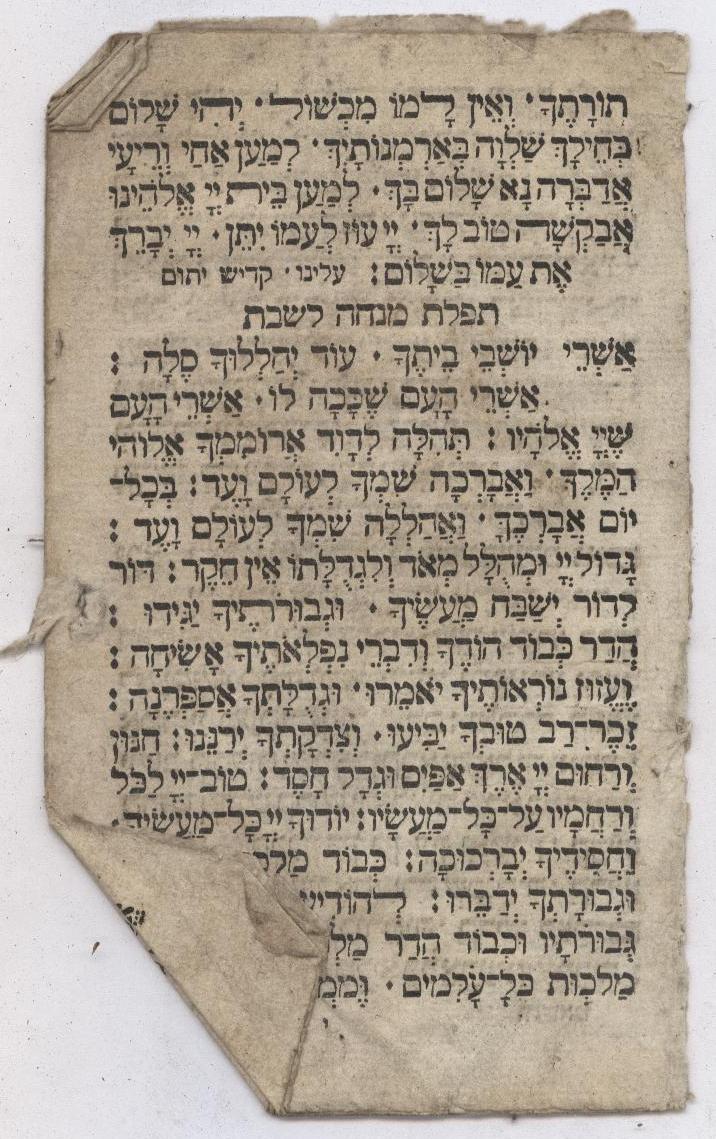 תוֹרָתֶךָ · וְאֵין לָמוֹ מִכְשׁוֹל · יְהִי שָׁלוֹם
בְּחֵילֵךְ שַׁלְוָה בְּאַרְמְנוֹתָיִךְ · לְמַעַן אַחַי וְרֵיעָי
אֲדַבְּרָה נָא שָׁלוֹם בָּךְ · לְמַעַן בֵּית יְיָ אֱלֹהֵינוּ
אֲבַקְשָׁה טוֹב לָךְ · יְיָ עוֹז לְעַמּוֹ יִתֵּן · יְיָ יְבָרֵךְ
אֶת עַמּוֹ בַשָּׁלוֹם : עלינו · קדיש יתום
תפלת מנחה לשבת
אַשְׁרֵי יוֹשְׁבֵי בֵיתֶךָ · עוֹד יְהַלְלוּךָ סֶלָה :
אַשְׁרֵי הָעָם שֶׁכָּכָה לוֹ · אַשְׁרֵי הָעָם
שֶׁיְיָ אֱלֹהָיו : תְּהִלָּה לְדָוִד אֲרוֹמִמְךָ אֱלוֹהַי
הַמֶּלֶךְ · וַאֲבָרְכָה שִׁמְךָ לְעוֹלָם וָעֶד : בְּכָל־
יוֹם אֲבָרְכֶךָּ · וַאֲהַלְלָה שִׁמְךָ לְעוֹלָם וָעֶד :
גָּדוֹל יְיָ וּמְהֻלָּל מְאֹד וְלִגְדֻלָּתוֹ אֵין חֵקֶר : דּוֹר
לְדוֹר יְשַׁבַּח מַעֲשֶׂיךָ · וּגְבוּרֹתֶיךָ יַגִּידוּ :
הֲדַר כְּבוֹד הוֹדֶךָ וְדִבְרֵי נִפְלְאֹתֶיךָ אָשִׂיחָה :
וֶעֱזוּז נוֹרְאוֹתֶיךָ יֹאמֵרוּ · וּגְדֻלָּתְךָ אֲסַפְּרֶנָּה :
זֵכֶר־רַב טוּבְךָ יַבִּיעוּ · וְצִדְקָתְךָ יְרַנֵּנוּ : חַנּוּן
וְרַחוּם יְיָ אֶרֶךְ אַפַּיִם וּגְדָל חָסֶד : טוֹב־יְיָ לַכֹּל
וְרַחֲמָיו עַל־כָּל־מַעֲשָׂיו : יוֹדוּךָ יְיָ כָּל־מַעֲשֶׂיךָ ·
וַחֲסִידֶיךָ יְבָרְכוּכָה : כְּבוֹד
וּגְבוּרָתְךָ יְדַבֵּרוּ :
גְּבוּרֹתָיו וּכְבוֹד הֲדַר
מַלְכוּת כָּל־עֹלָמִים ·